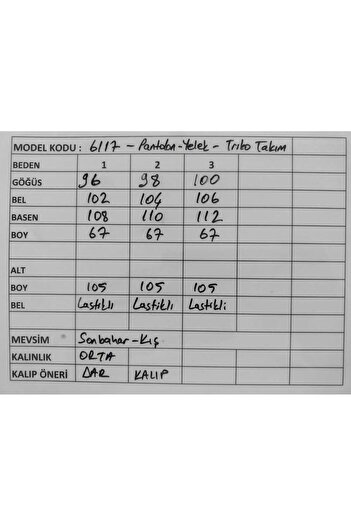 MODEL KODU : 6117 - Pantolon-Yelek - Triko Takım
BEDEN 1 2 3
GÖĞÜS 96 98 100
BEL 102 104 106
BASEN 108 110 112
BOY 67 67 67
ALT
BOY 105 105 105
BEL Lastikli Lastikli Lastikli
MEVSİM Sonbahar-Kış
KALINLIK ORTA
KALIP ÖNERİ DAR KALIP